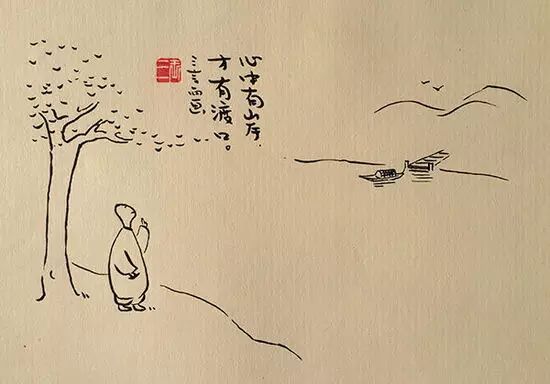 心中有岸,
才有渡口。
三言画